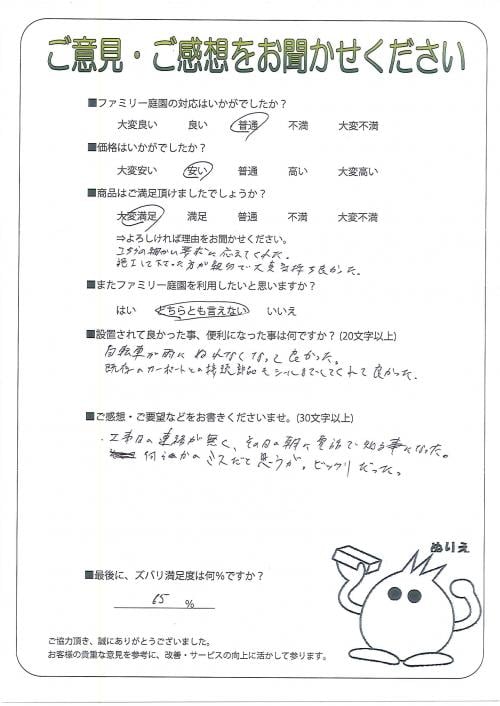 ご意見・ご感想をお聞かせください
■ファミリー庭園の対応はいかがでしたか？
大変良い 良い 普通 不満 大変不満
■価格はいかがでしたか？
大変安い 安い 普通 高い 大変高い
■商品はご満足頂けましたでしょうか？
大変満足 満足 普通 不満 大変不満
⇒よろしければ理由をお聞かせください。
こちらの細かい要求に応えてくれた。
施工して下さった方が親切で大変気持ち良かった。
■またファミリー庭園を利用したいと思いますか？
はい どちらとも言えない いいえ
■設置されて良かった事、便利になった事は何ですか？(20文字以上)
自転車が雨にぬれなくなって良かった。
既存のカーポートとの接続部品もシールまでしてくれて良かった。
■ご感想・ご要望などをお書きくださいませ。(30文字以上)
・工事日の連絡が無く、その日の朝に電話で知る事になった。
何らかのミスだと思うが。ビックリだった。
ぬりえ
■最後に、ズバリ満足度は何％ですか？
65 %
ご協力頂き、誠にありがとうございました。
お客様の貴重な意見を参考に、改善・サービスの向上に活かして参ります。